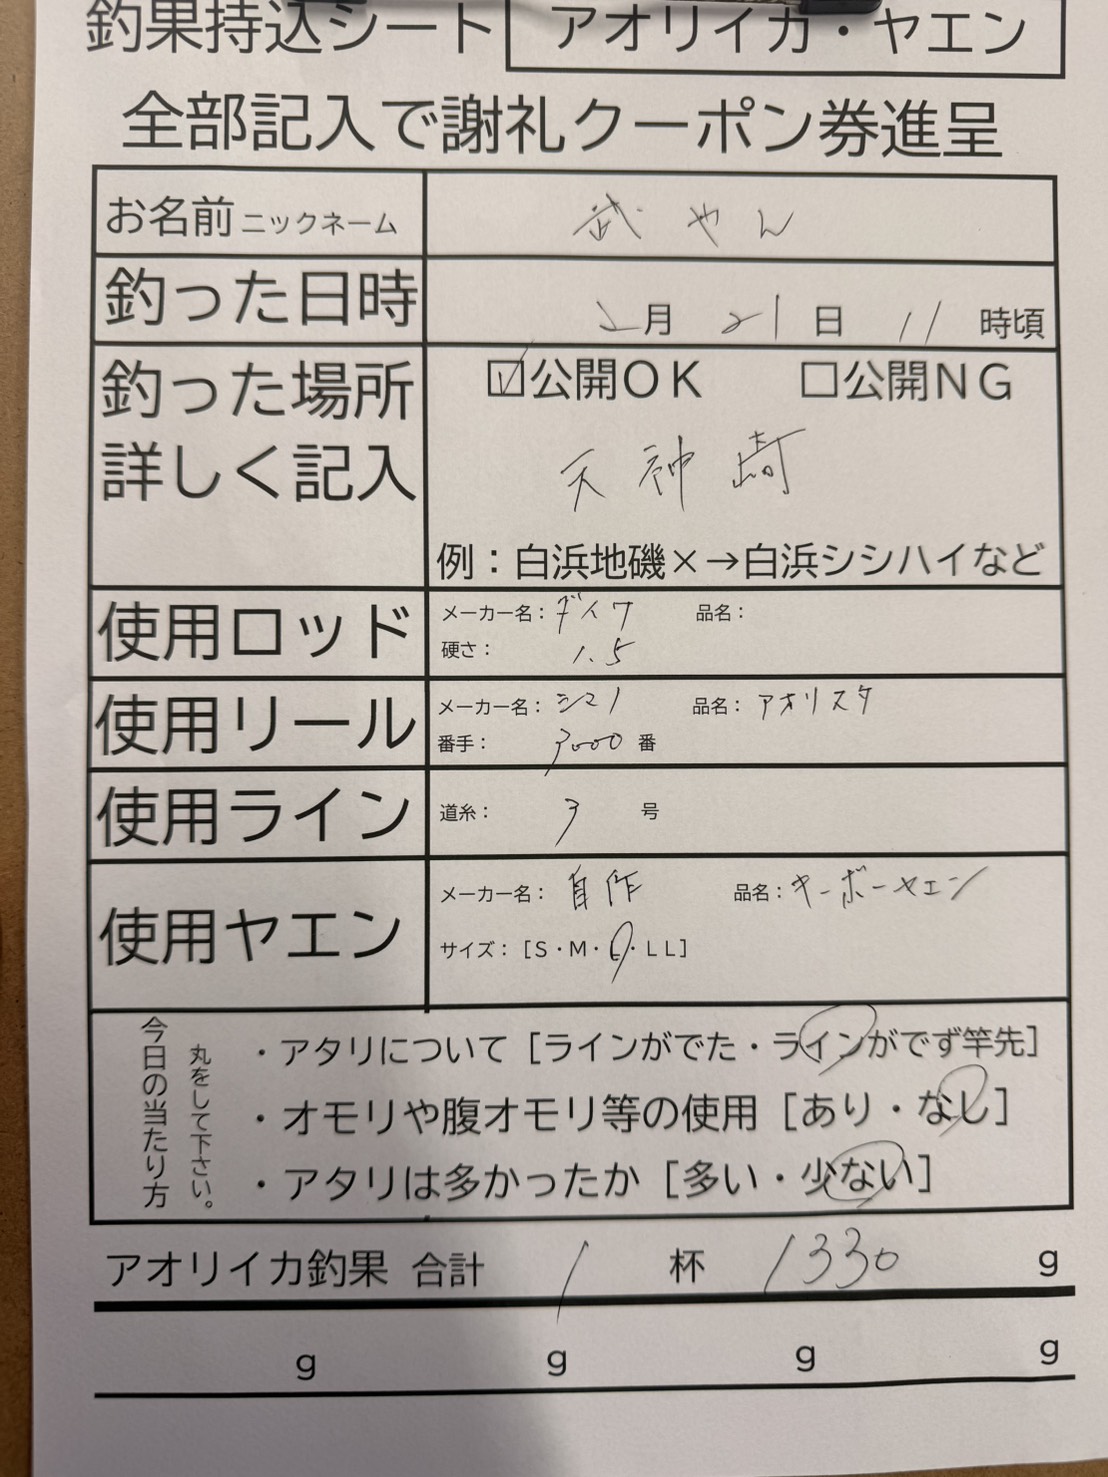 釣果持込シート アオリイカ・ヤエン
全部記入で謝礼クーポン券進呈
お名前 ニックネーム 武やん
釣った日時 2月 21日 11 時頃
釣った場所 ☑公開OK □公開NG
詳しく記入 天神崎
例：白浜地磯×→白浜シシハイなど
使用ロッド メーカー名：ダイワ 品名：
硬さ： 1.5
使用リール メーカー名：シマノ 品名：アオリスタ
番手： 3000 番
使用ライン 道糸： 3 号
使用ヤエン メーカー名：自作 品名：キーボーヤエン
サイズ：[S・M・L・LL]
今日の当たり方 丸をして下さい。
・アタリについて [ラインがでた・ラインがでず竿先]
・オモリや腹オモリ等の使用 [あり・なし]
・アタリは多かったか [多い・少ない]
アオリイカ釣果 合計 1 杯 1330 g
g g g g